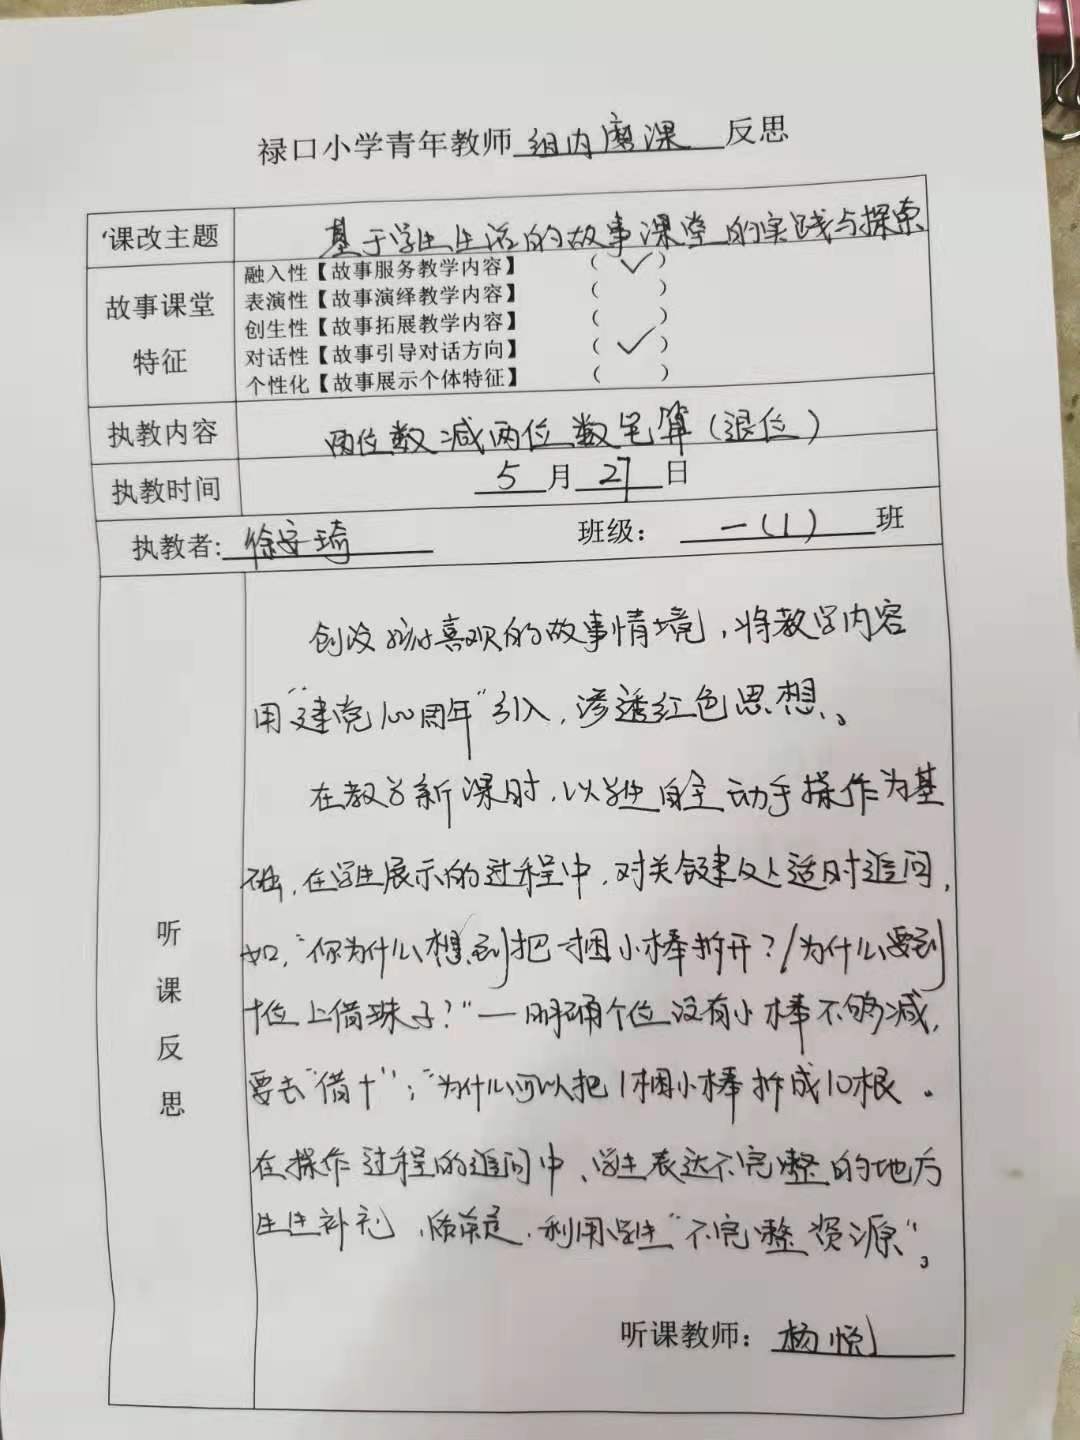 禄口小学青年教师组内磨课反思
课改主题 基于学生生活的故事课堂的实践与探索
故事课堂
特征
融入性【故事服务教学内容】 (✓)
表演性【故事演绎教学内容】 ( )
创生性【故事拓展教学内容】 ( )
对话性【故事引导对话方向】 (✓)
个性化【故事展示个体特征】 ( )
执教内容 两位数减两位数笔算(退位)
执教时间 5月27日
执教者: 徐 琦 班级: 一(1) 班
听课反思
创设孩子喜欢的故事情境,将教学内容
用“建党100周年”引入,渗透红色思想。
在教学新课时,以学生自主动手操作为基
础,在学生展示的过程中,对关键处适时追问,
如,“你为什么想到把一捆小棒拆开?/为什么要到
十位上借珠子?”—明确个位没有小棒不够减,
要去“借十”;“为什么可以把1捆小棒拆成10根。
在操作过程的追问中,学生表达不完整的地方
生生补充,利用学生“不完整资源”。
听课教师: 杨悦